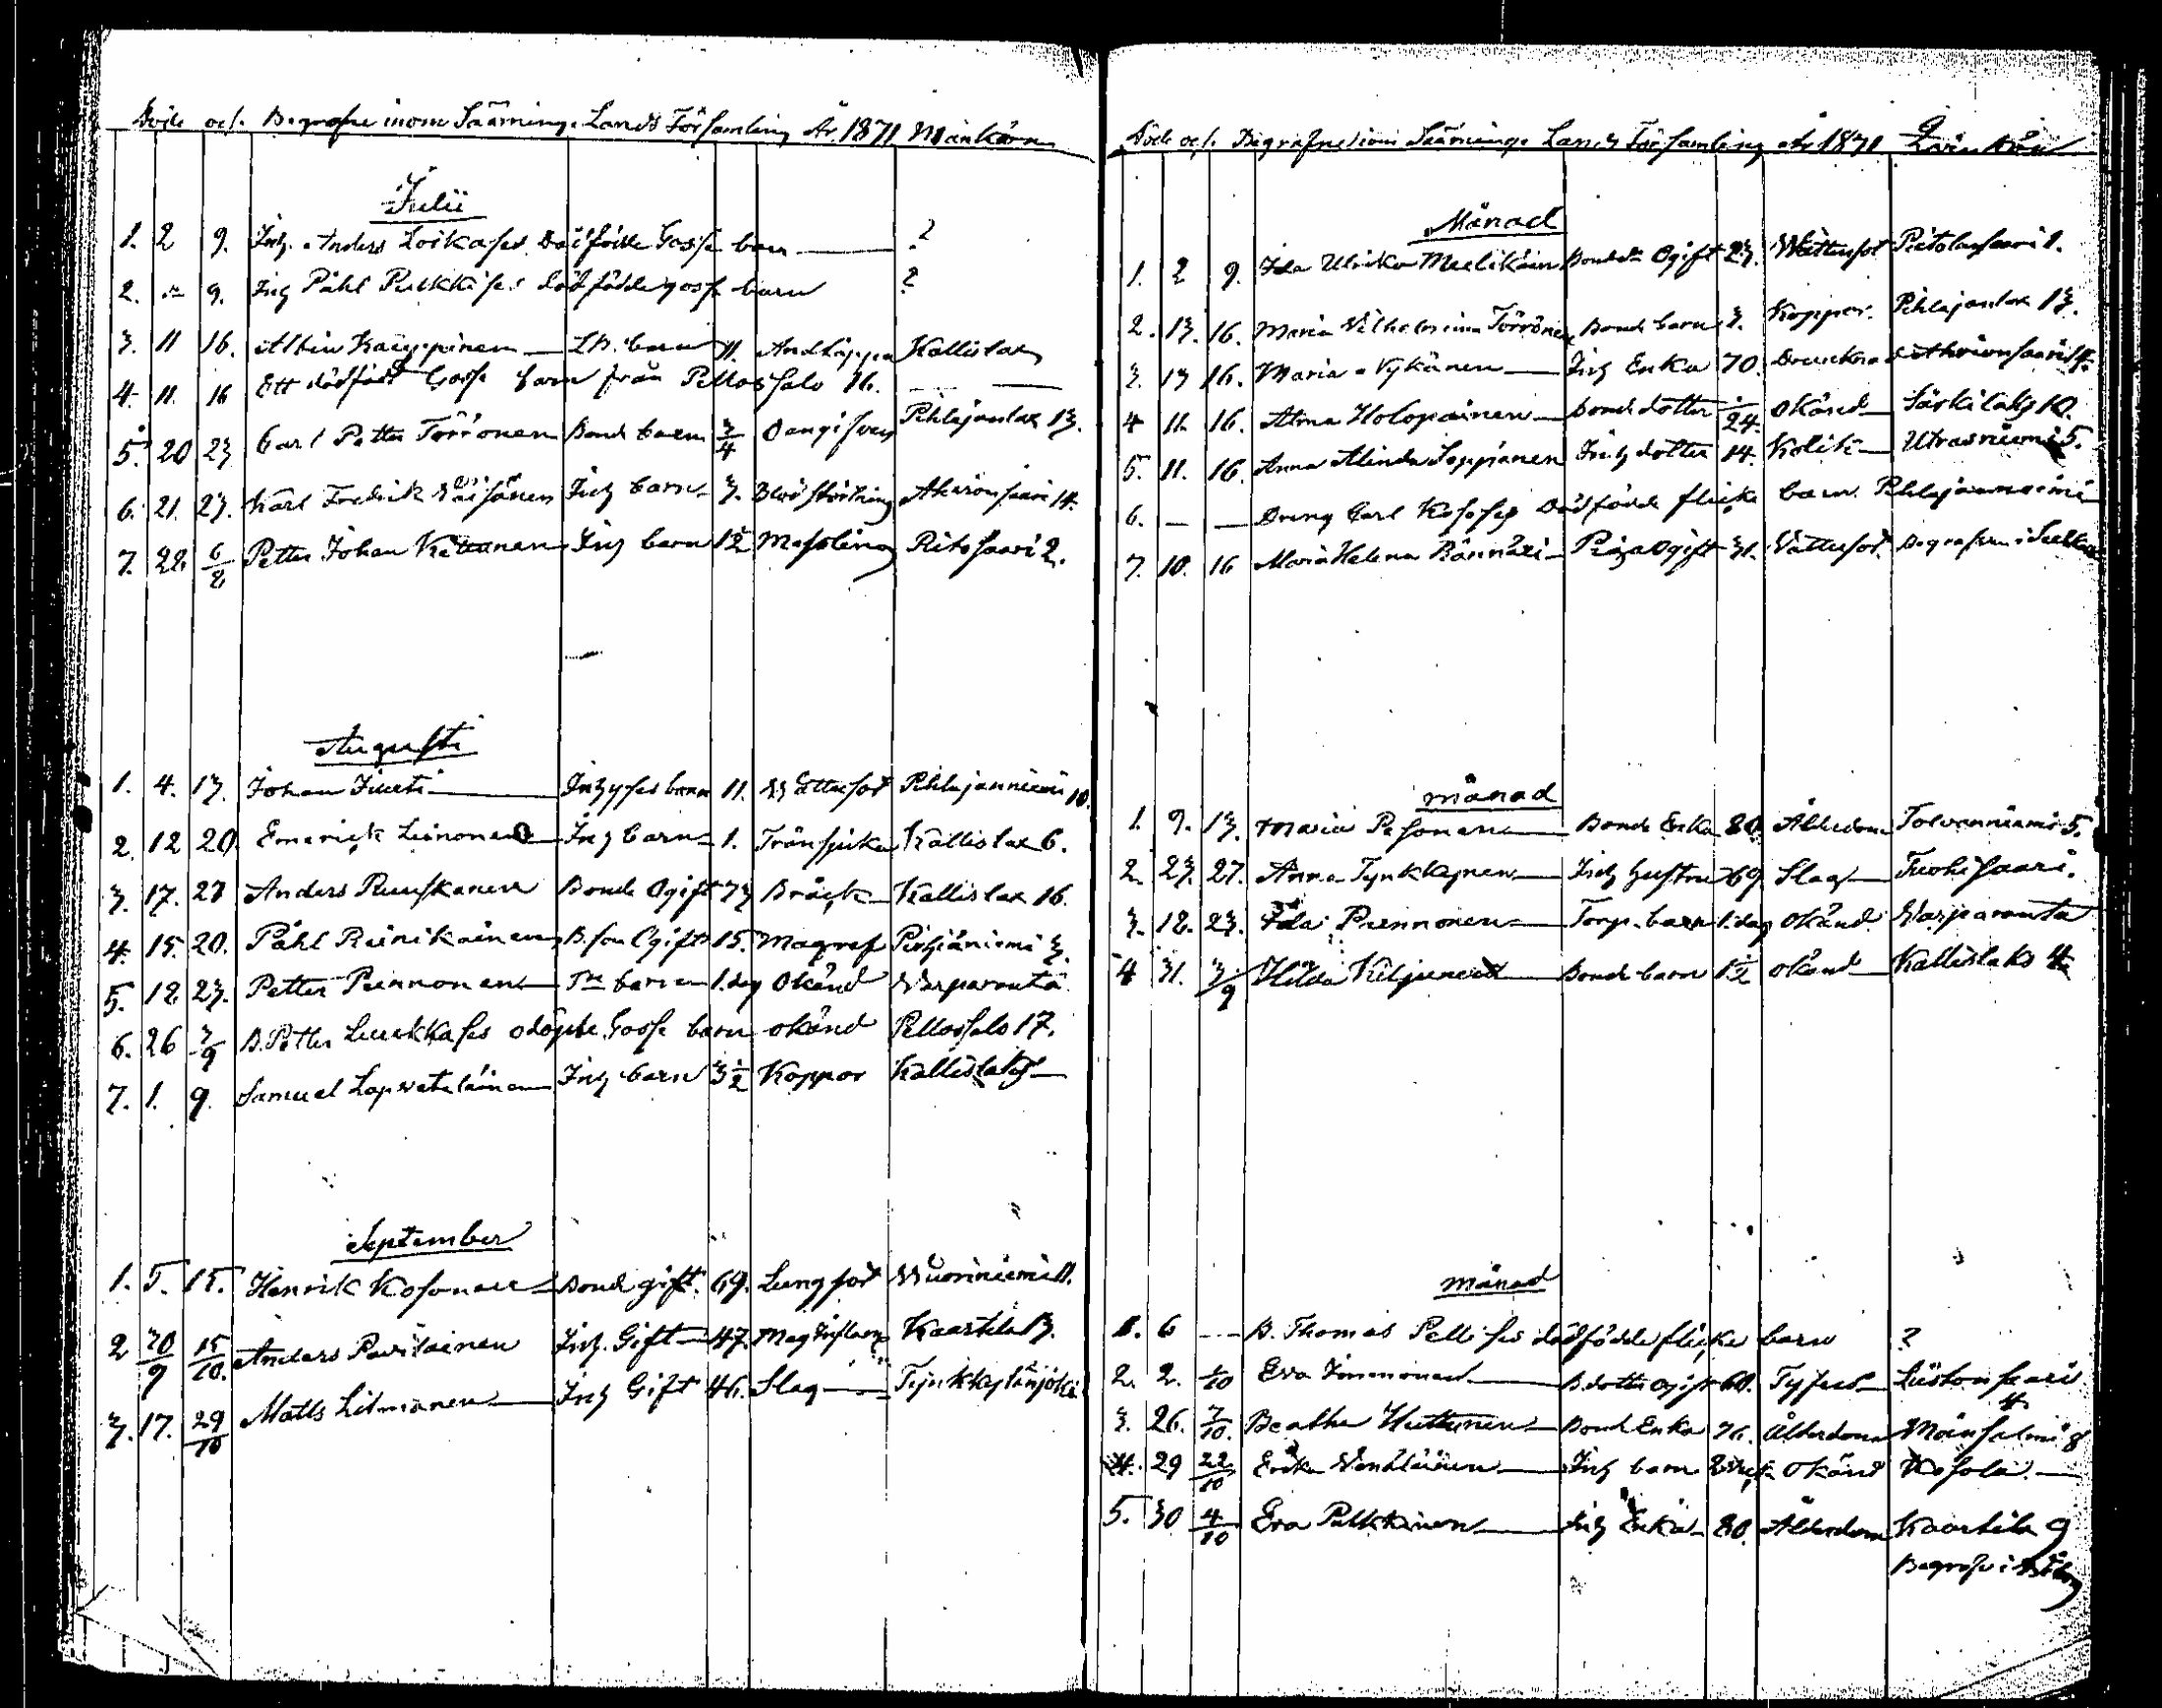 Döde och Begrafne inom Sääminge Lands Församling År 1871 Mankön
Julii
1. 2 9. Inh. Anders Loikases Dödfödde Gosse barn — ?
2. " 9. Inh Påhl Pulkkises dödfödde gosse barn ?
3. 11 16. Albin Kauppinen — barn 11. Andtäppa Kallislax
4. 11. 16 Ett dödfödt Gosse barn från Pellossalo 16. — —
5. 20 23 Carl Petter Törrönen Bond barn 3/4 Pihlajanlax 13.
6. 21. 23. Karl Fredrik Väisänen Inh barn 3. Blodstörtning Ahvionsaari 14.
7. 22. 6/8 Petter Johan Inh barn 1½ Messling Ritosaari 2.
Augusti
1. 4. 13. Johan — Inhyses barn 11. Vattusot Pihlajaniemi 10.
2. 12 20 Emerick Leinonen Inh barn 1. Tränsjuka Kallislax 6.
3. 17. 27 Anders Ruuskanen Bonde Ogift 73 Bråck Kallislax 16.
4. 15. 20. Påhl Reinikainen B. son Ogift 15. Magref 3.
5. 18. 23. Petter Punnonen barn 1. dag Okänd Varparanta
6. 26 3/9 B. Petter Luukkases odöpte Gosse barn okänd Pellossalo 17.
7. 1. 9. Samuel Lapveteläinen Inh barn 3½ Koppor Kallislaks —
September
1. 5. 15. Henrik Kosonen Bond gift. 69. Lungsot Vuoriniemi 11.
2 20/9 15/10. Anders Pavilainen Inh. Gift — 47. Mag Inflam Kaartila 13.
3. 17. 29/10 Matts Litmanen — Inh Gift 46. Slag —
Döde och Begrafne inom Sääminge Lands Församling År 1871 Qvinkön
Månad
1. 2 9. Ida Ulrika Bondd Ogift 23. Vattusot Pietolansaari 1.
2. 13. 16. Maria Vilhelmina Törrönen Bond barn 3. Koppor. Pihlajanlax 13.
3. 13 16. Maria Nykänen — Inh Enka 70. Ahvionsaari 14.
4 11. 16. Alma Holopainen — bond dotter 1/24. okänd — Särkilaks 10.
5. 11. 16. Anna Alinda Seppänen Inh dotter 14. Kolik — Utrasniemi 5.
6. — — Dreng Carl Kososes Dödfödde flicke barn. Pihlajaniemi
7. 10. 16 Maria Helena — Piga Ogift 31. Vattusot. Begrafven i
månad
1. 9. 13. Maria Pesonen — Bonde Enka 80. Ålderdom Tolvanniemi 5.
2. 23. 27. Anna Tynkkynen — Inh hustru 69 Slag — Tuohisaari.
3. 18. 23. Ida Punnonen — Torp. barn 1. dag okänd Varparanta
4 31. 3/9 Hilda Kiljunen Bond barn 1½ okänd Kallislaks 4
månad
1. 6 — B. Thomas Pellises dödfödde flicke barn ?
2. 2. 1/10 Eva Immonen — B. dotter ogift 60. Tyfus Liistonsaari 4
3. 26. 7/10. Beatha Huttunen — Bond Enka 76. Ålderdom Moinsalmi 8
4. 29 22/10 Erika — Inh barn okänd Kosola. —
5. 30 4/10 Eva Pulkkinen — Inh Enka 80. Ålderdom Kaartila 9
Begrafv i